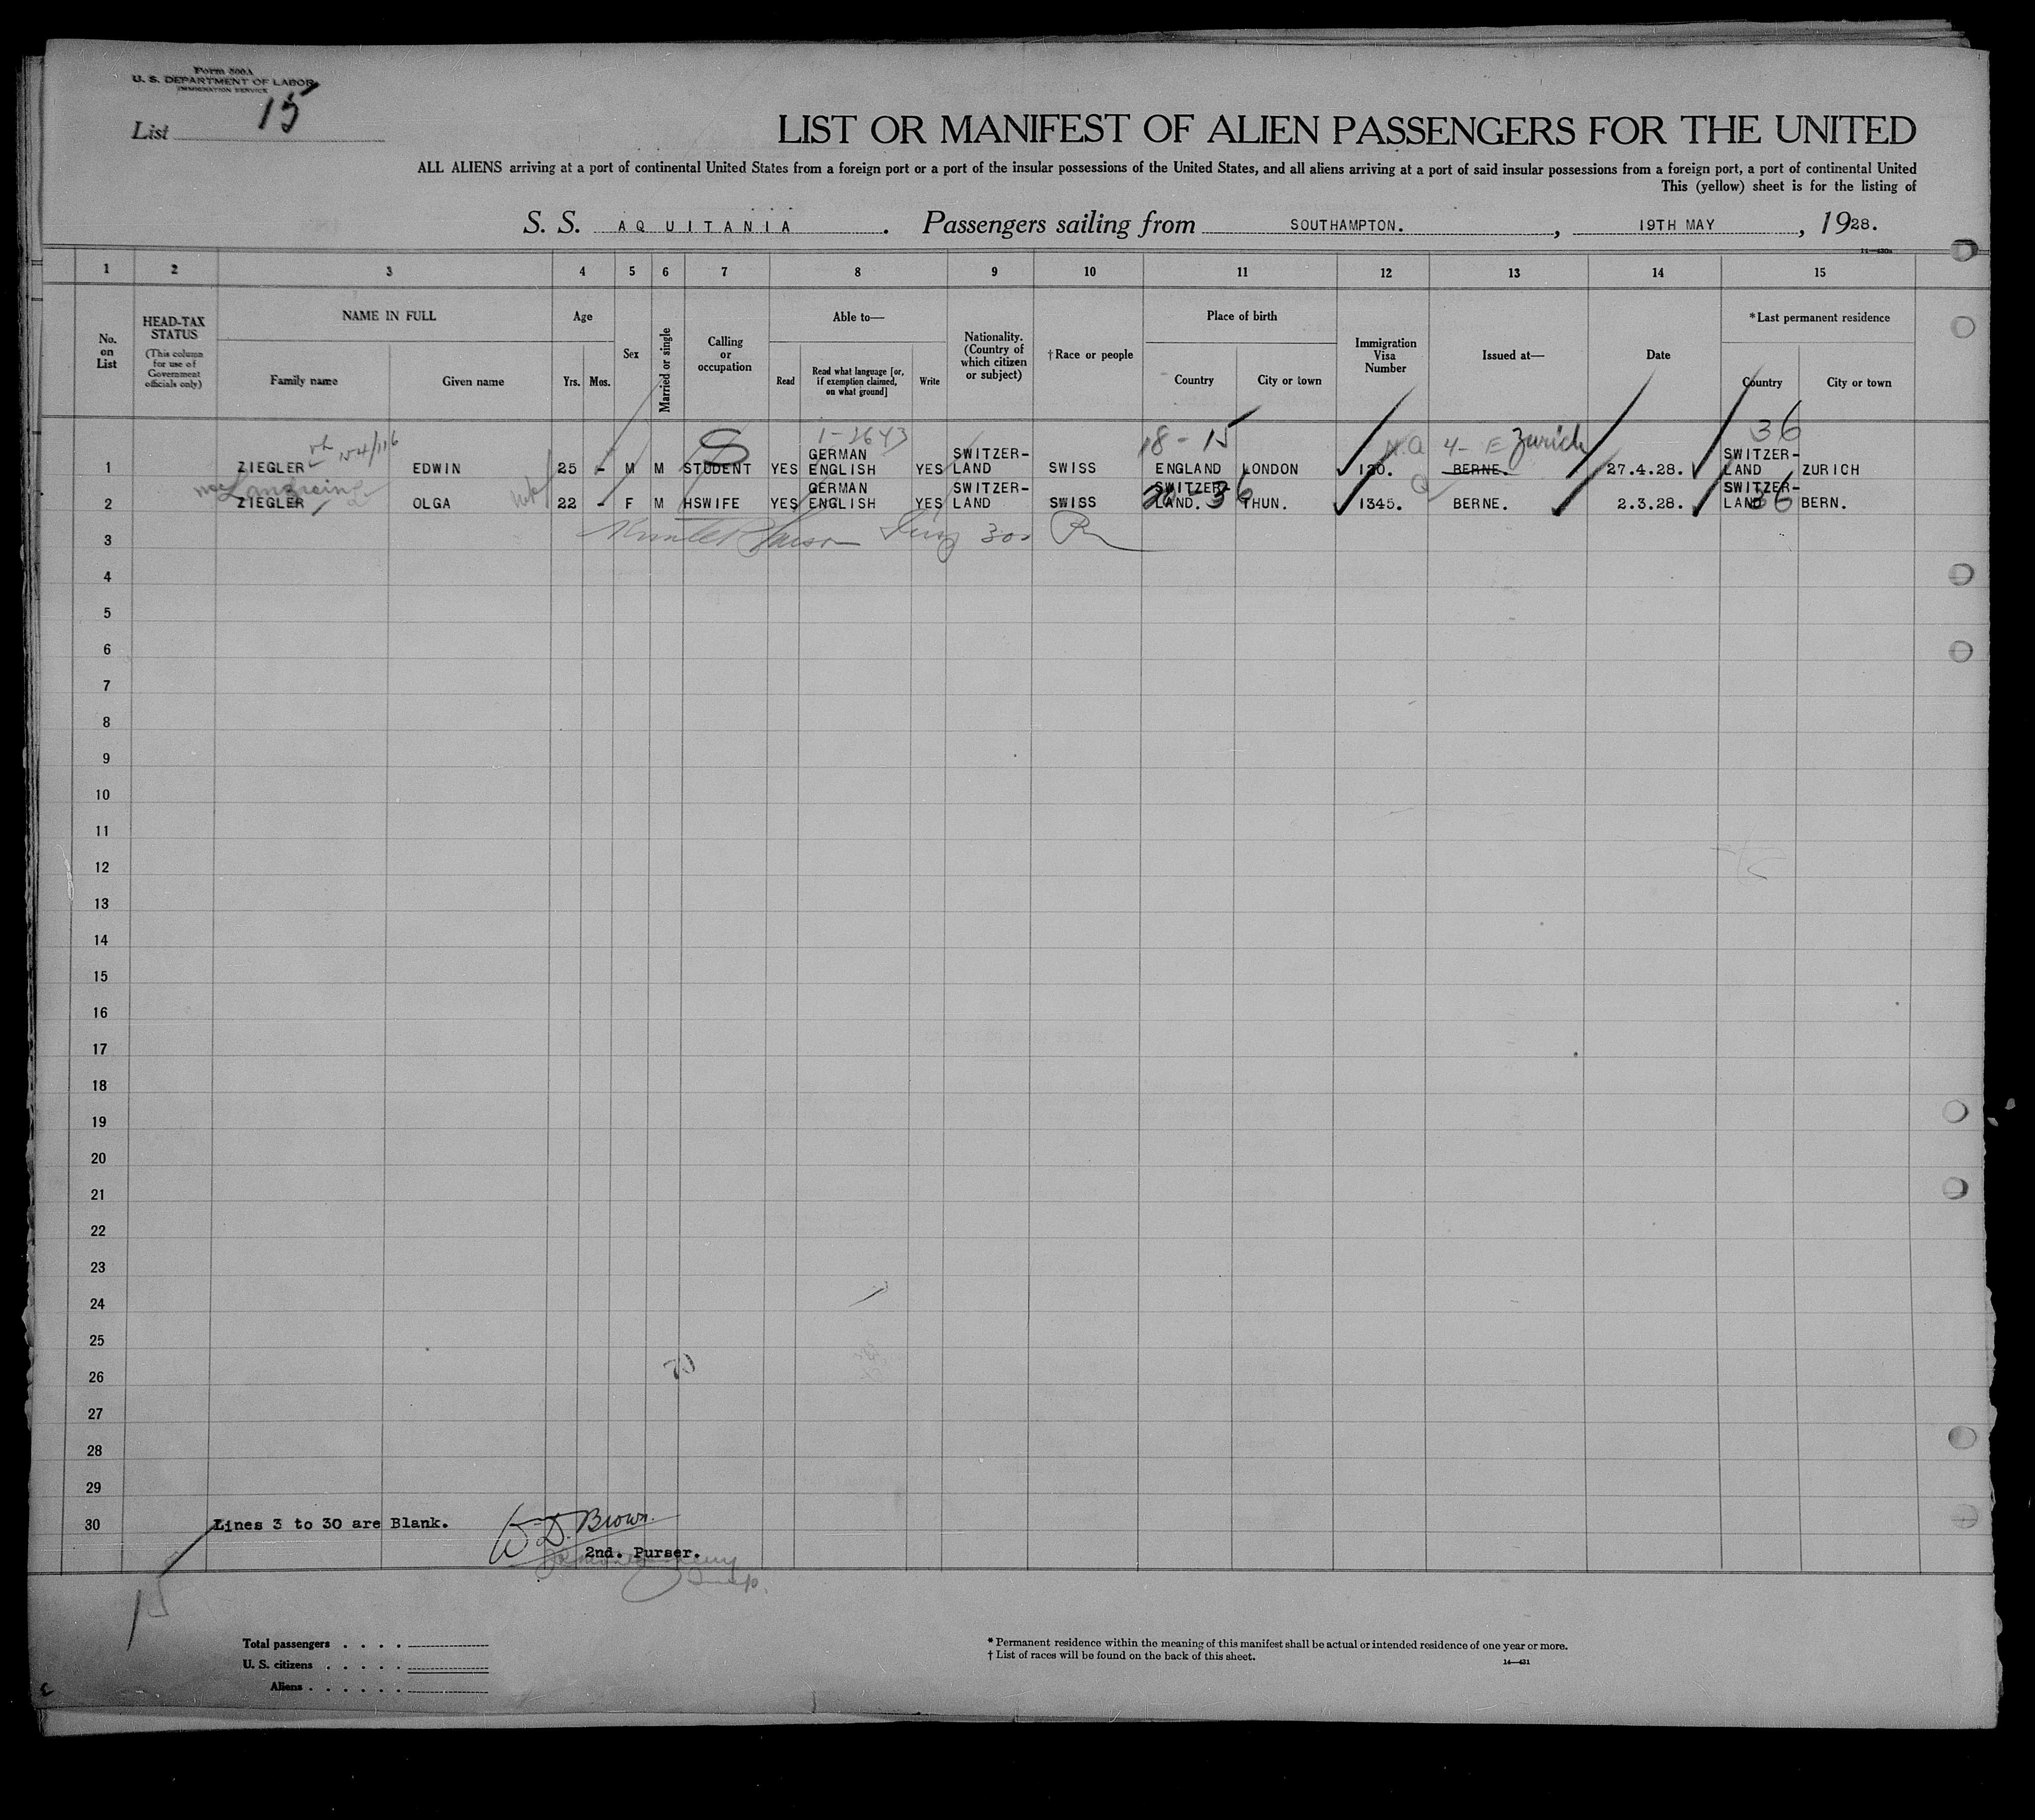 Form 500A
U. S. DEPARTMENT OF LABOR
IMMIGRATION SERVICE
List 15
LIST OR MANIFEST OF ALIEN PASSENGERS FOR THE UNITED
ALL ALIENS arriving at a port of continental United States from a foreign port or a port of the insular possessions of the United States, and all aliens arriving at a port of said insular possessions from a foreign port, a port of continental United
This (yellow) sheet is for the listing of
S. S. AQUITANIA. Passengers sailing from SOUTHAMPTON., 19TH MAY, 1928.
1 2 3 4 5 6 7 8 9 10 11 12 13 14 15
No. on List
HEAD-TAX STATUS
(This column for use of Government officials only)
NAME IN FULL
Family name Given name
Age
Yrs. Mos.
Sex
Married or single
Calling or occupation
Able to—
Read
Read what language [or, if exemption claimed, on what ground]
Write
Nationality. (Country of which citizen or subject)
†Race or people
Place of birth
Country City or town
Immigration Visa Number
Issued at—
Date
*Last permanent residence
Country City or town
1-2643 18-15 4- E Zurich 36
1 ZIEGLER EDWIN 25 - M M STUDENT YES GERMAN ENGLISH YES SWITZER-LAND SWISS ENGLAND LONDON 120. BERNE. 27.4.28. SWITZER-LAND ZURICH
2 ZIEGLER OLGA 22 - F M HSWIFE YES GERMAN ENGLISH YES SWITZER-LAND SWISS SWITZER-LAND. THUN. 1345. BERNE. 2.3.28. SWITZER-LAND 36 BERN.
3
4
5
6
7
8
9
10
11
12
13
14
15
16
17
18
19
20
21
22
23
24
25
26
27
28
29
30 Lines 3 to 30 are Blank. W. D. Brown.
2nd. Purser.
15
Total passengers . . . .
U. S. citizens . . . . .
Aliens . . . . . .
* Permanent residence within the meaning of this manifest shall be actual or intended residence of one year or more.
† List of races will be found on the back of this sheet.
14—431